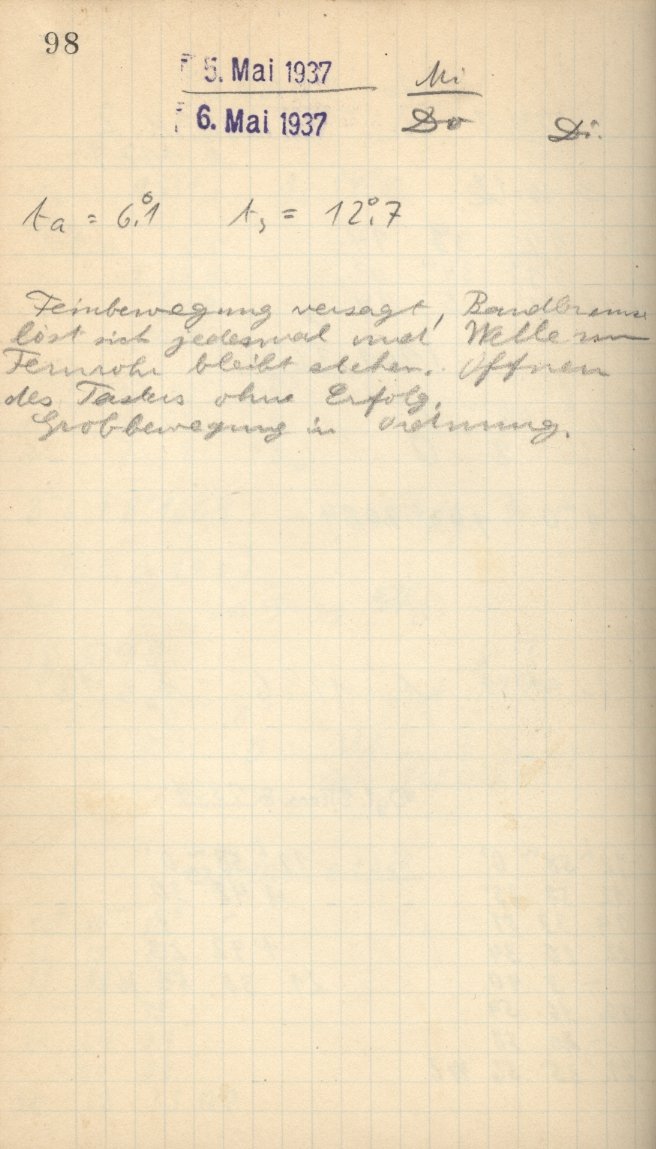 98
5. Mai 1937 Mi
6. Mai 1937 Do Di.
ta = 6°.1 ts = 12°.7
Feinbewegung versagt, Bandbremse
löst sich jedesmal und Welle am
Fernrohr bleibt stehen. Öffnen
des Tasters ohne Erfolg.
Grobbewegung in Ordnung.